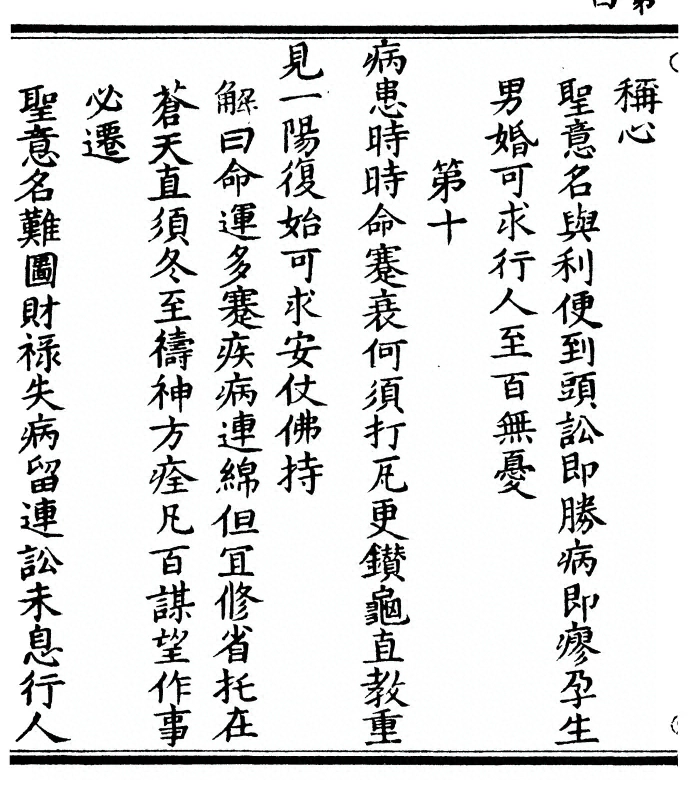 稱心
聖意名與利便到頭訟即勝病即瘳孕生
男婚可求行人至百無憂
第十
病患時時命蹇衰何須打瓦更鑚龜直教重
見一陽復始可求安仗佛持
解曰命運多蹇疾病連綿但冝修省托在
蒼天直須冬至禱神方痊凡百謀望作事
必遷
聖意名難圖財祿失病留連訟未息行人